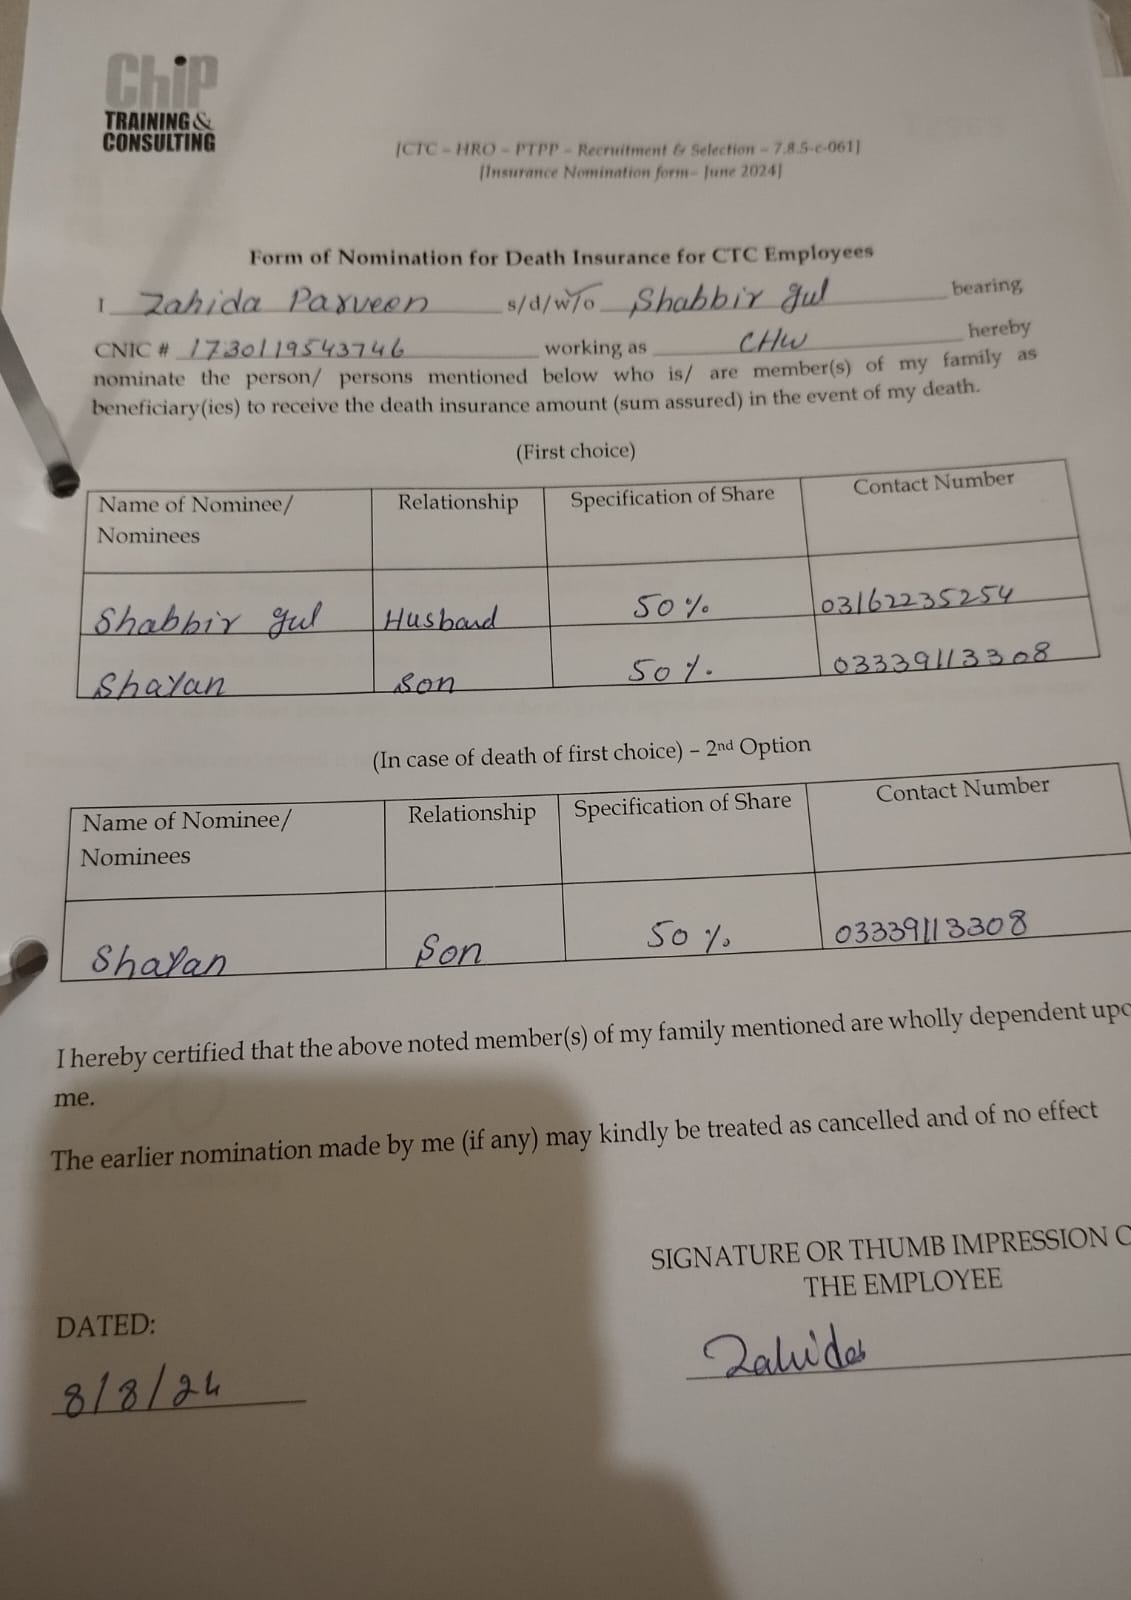 ChiP
TRAINING &
CONSULTING
[CTC – HRO – PTPP – Recruitment & Selection – 7.8.5-c-061]
[Insurance Nomination form– June 2024]
Form of Nomination for Death Insurance for CTC Employees
I Zahida Parveen s/d/w/o Shabbir gul bearing
CNIC # 1730119543746 working as CHW hereby
nominate the person/ persons mentioned below who is/ are member(s) of my family as
beneficiary(ies) to receive the death insurance amount (sum assured) in the event of my death.
(First choice)
Name of Nominee/ Relationship Specification of Share Contact Number
Nominees
Shabbir gul Husband 50% 03162235254
Shayan Son 50%. 03339113308
(In case of death of first choice) – 2nd Option
Name of Nominee/ Relationship Specification of Share Contact Number
Nominees
Shayan Son 50% 03339113308
I hereby certified that the above noted member(s) of my family mentioned are wholly dependent upo
me.
The earlier nomination made by me (if any) may kindly be treated as cancelled and of no effect
SIGNATURE OR THUMB IMPRESSION O
THE EMPLOYEE
DATED:
Zahida
8/8/24